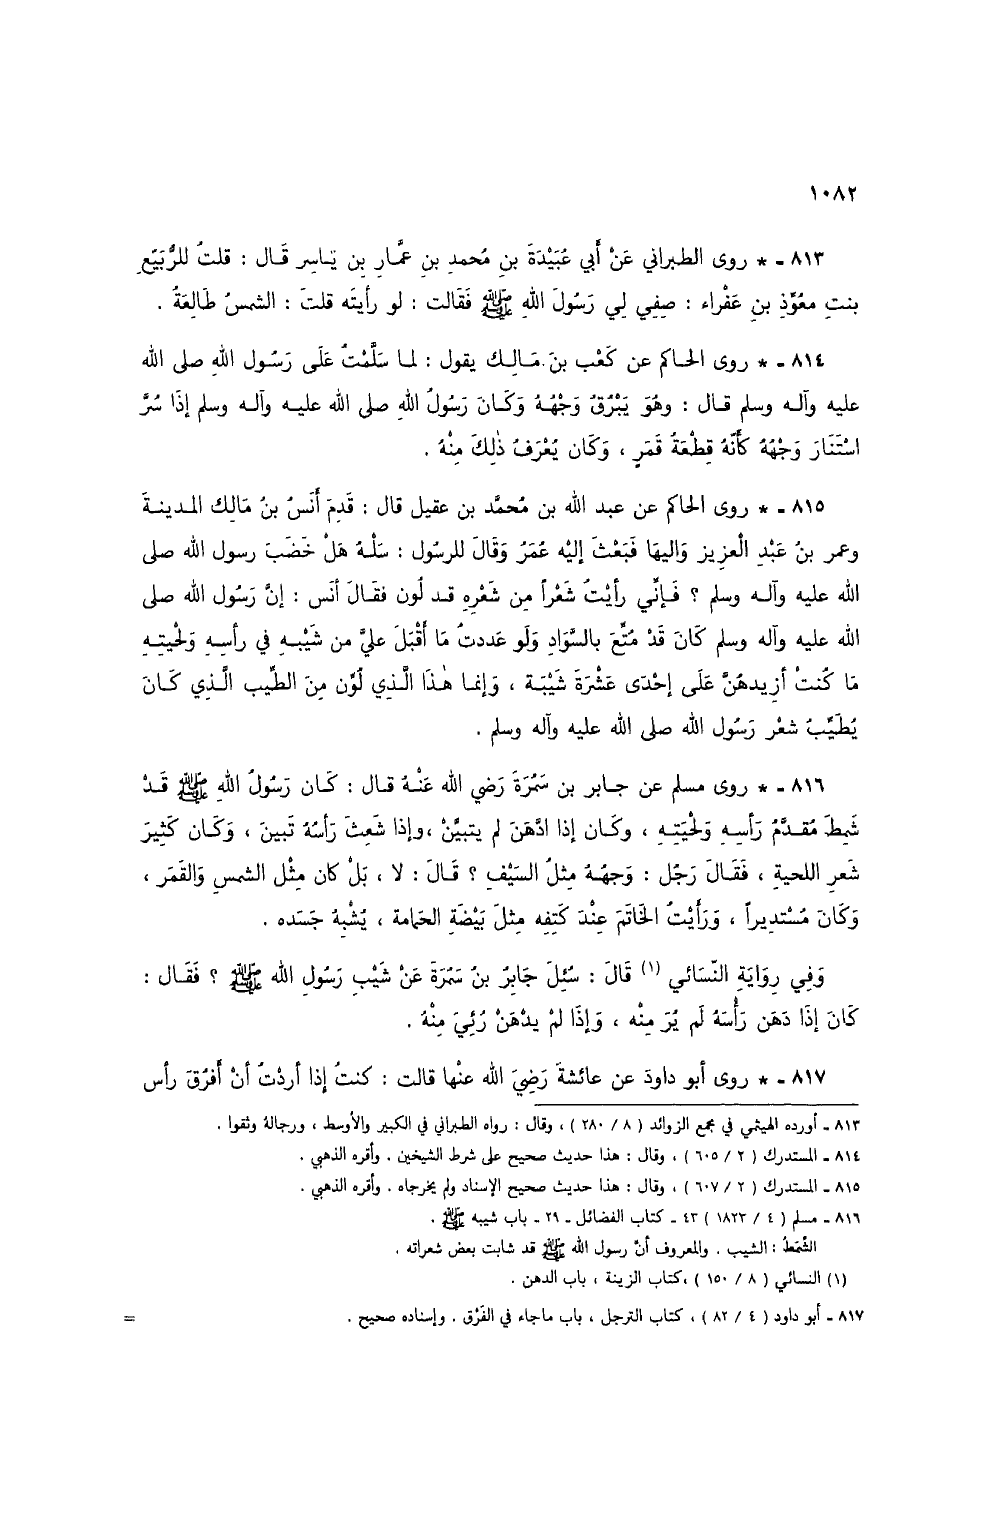 ١٠٨٢
٨١٣ - * روى الطبراني عَنْ أَبي عُبَيْدَةَ بنِ مُحمدِ بنِ عَمَّارِ بنِ يَاسِر قَال : قلتُ للرُّبَيِّع
بنتِ معُوِّذِ بنِ عَفْراء : صِفِي لِي رَسُولَ اللهِ ﷺ فَقَالت : لو رأيتَه قلتَ : الشمسُ طَالِعَةُ .
٨١٤ - * روى الحاكم عن كَعْب بنَ مَالِك يقول : لما سَلَّمْتُ عَلَى رَسُول اللهِ صلى الله
عليه وآله وسلم قال : وهُوَ يَبْرُقُ وَجْهُهُ وَكَانَ رَسُولُ اللهِ صلى الله عليه وآله وسلم إذَا سُرَّ
اسْتَنَارَ وَجْهُهُ كأَنَّهُ قِطْعَةُ قَمَرٍ ، وَكَان يُعْرَفُ ذٰلِكَ مِنْهُ .
٨١٥ - * روى الحاكم عن عبد الله بن مُحمَّد بن عقيل قال : قَدِمَ أَنَسُ بنُ مَالِك المدينةَ
وعمر بنُ عَبْدِ الْعزِيز وَاليهَا فَبَعْثَ إليْه عُمَرُ وَقَالَ للرسُول : سَلْهُ هَلْ خَضَبَ رسول الله صلى
الله عليه وآله وسلم ؟ فَإِنِّي رأيْتُ شَعْراً مِن شَعْرِهِ قد لُون فقَالَ أنَس : إنَّ رَسُول الله صلى
الله عليه وآله وسلم كَانَ قَدْ مُتِّعَ بالسَّوَادِ وَلَو عَددتُ مَا أَقْبَلَ عليَّ من شَيْبهِ في رأسِهِ وَلْحيتِهِ
مَا كُنتْ أزِيدهُنَّ عَلَى إحْدَى عَشْرَةَ شَيْبَة ، وَإنما هٰذَا الَّذِي لُوِّن مِنَ الطِّيب الَّذِي كَانَ
يُطَيِّبُ شعْر رَسُول الله صلى الله عليه وآله وسلم .
٨١٦ - * روى مسلم عن جابر بن سَمُرَةَ رَضِي الله عَنْهُ قال : كَان رَسُولُ اللهِ ﷺ قَدْ
شَمِطَ مُقدَّمُ رَأسِهِ وَلْحَيَتِهِ ، وكَان إذا ادَّهَنَ لم يتبيَّنْ ،وإذا شَعِثَ رَأسُهُ تَبينَ ، وَكَان كَثِيرَ
شَعرِ اللحيةِ ، فَقَالَ رَجُل : وَجهُهُ مِثلُ السَيْفِ ؟ قَالَ : لا ، بَلْ كان مِثْل الشمسِ وَالقَمَر ،
وَكَانَ مُسْتدِيراً ، وَرَأيْتُ الخَاتَمَ عِنْدَ كَتِفِه مِثلَ بَيْضَةِ الحَامة ، يُشْبِهُ جَسَده .
وَفِي رِوَايَةِ النّسَائي (١) قَالَ : سُئِلَ جَابِرُ بنُ سَمُرَةَ عَنْ شَيْبِ رَسُولِ الله ﷺ ؟ فَقَال :
كَانَ إذَا دَهَن رَأْسَهُ لَم يُرَ مِنْه ، وَإذَا لَمْ يدْهَنْ رُئِيَ مِنْهُ .
٨١٧ - * روى أبو داودَ عن عائشةَ رَضِيَ الله عنْها قالت : كنتُ إذا أردْتُ أنْ أَفرُقَ رأس
٨١٣ - أورده الهيثمي في مجمع الزوائد ( ٨ / ٢٨٠ ) ، وقال : رواه الطبراني في الكبير والأوسط ، ورجالهُ وثقوا .
٨١٤ - المستدرك ( ٢ / ٦٠٥ ) ، وقال : هذا حديث صحيح على شرط الشيخين . وأقره الذهبي .
٨١٥ - المستدرك ( ٢ / ٦٠٧ ) ، وقال : هذا حديث صحيح الإسناد ولم يخرجاه . وأقره الذهبي .
٨١٦ - مسلم ( ٤ / ١٨٢٣ ) ٤٣ - كتاب الفضائل - ٢٩ - باب شيبه ﷺ .
الشَّمَطُ : الشيب . والمعروف أنَّ رسول الله ﷺ قد شابت بعض شعراته .
(١) النسائي ( ٨ / ١٥٠ ) ،كتاب الزينة ، باب الدهن .
٨١٧ - أبو داود ( ٤ / ٨٢ ) ، كتاب الترجل ، باب ماجاء في الفَرْق . وإسناده صحيح . =